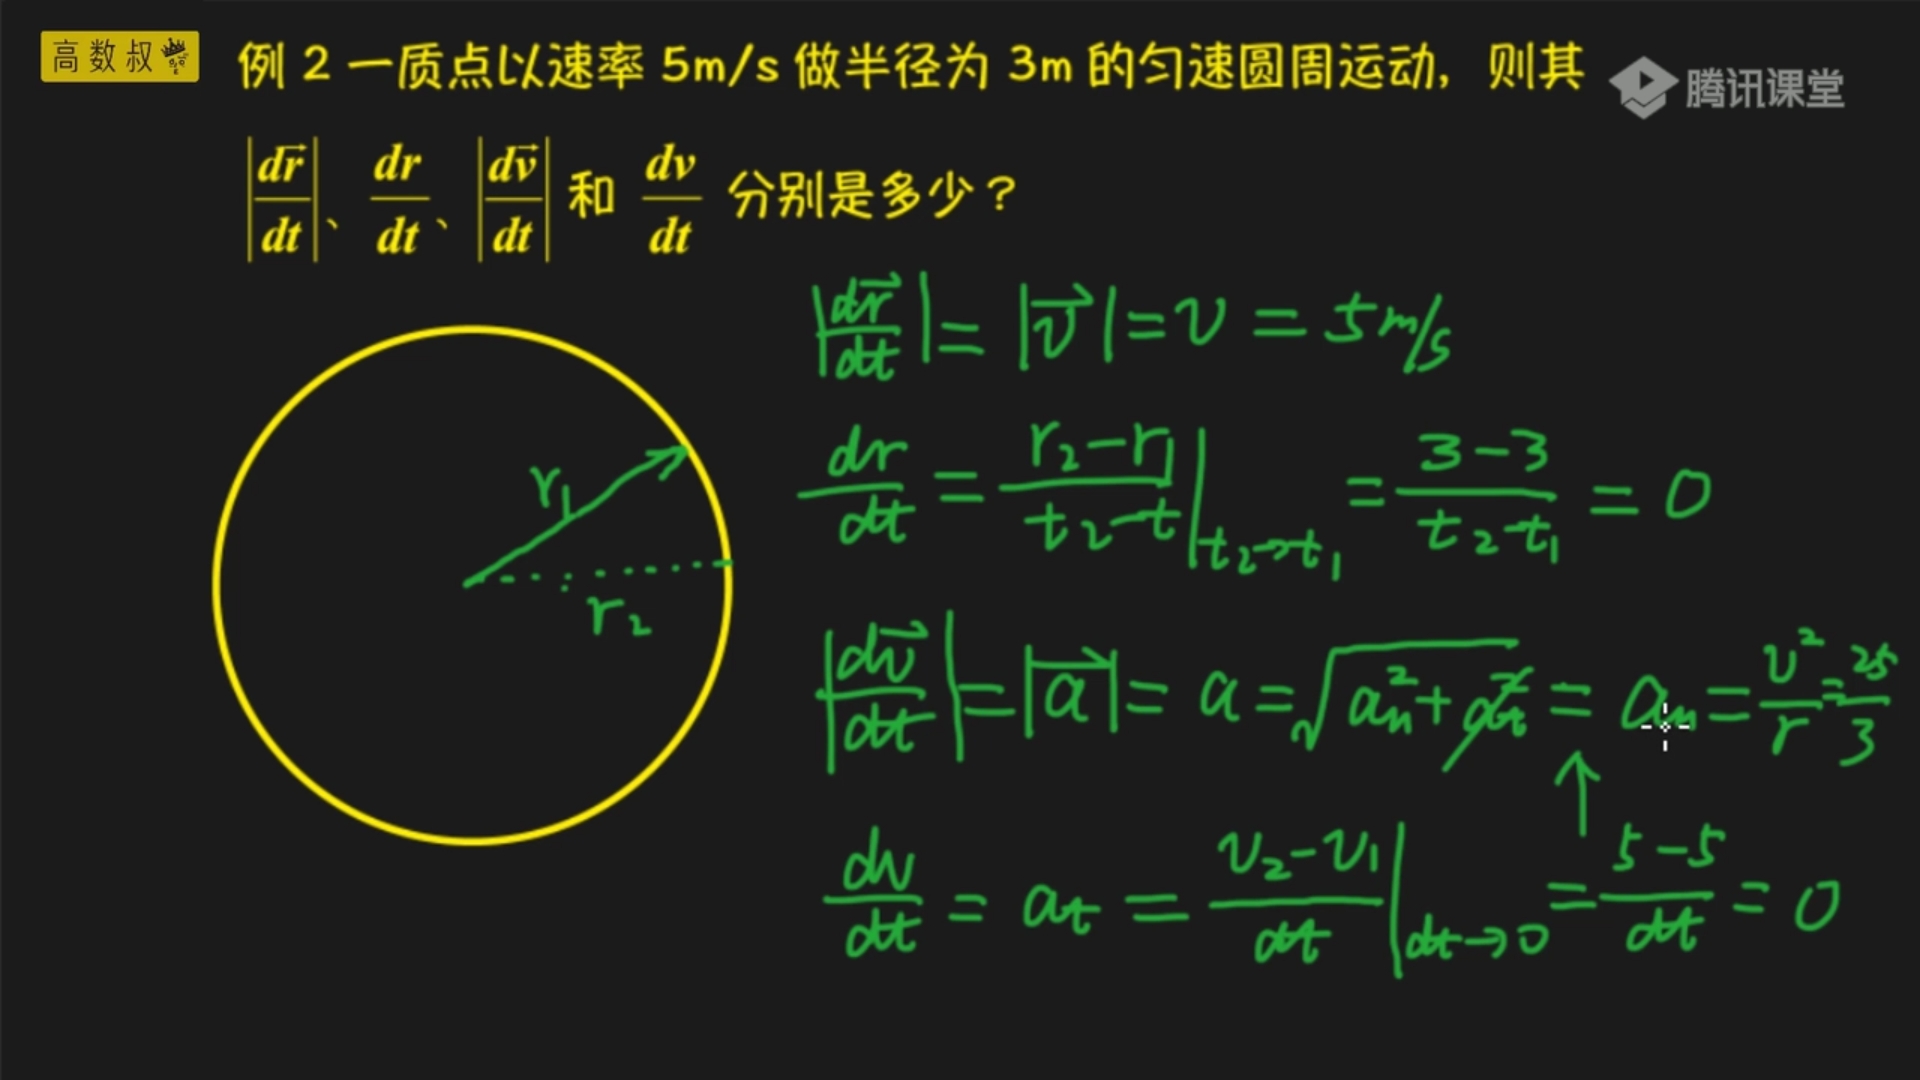 高数叔
例 2 一质点以速率 5m/s 做半径为 3m 的匀速圆周运动，则其
腾讯课堂
|dr⃗/dt|、dr/dt、|dv⃗/dt| 和 dv/dt 分别是多少？
|dr⃗/dt| = |v⃗| = v = 5m/s
dr/dt = (r₂-r₁)/(t₂-t)|t₂→t₁ = (3-3)/(t₂-t₁) = 0
r₁
r₂
|dv⃗/dt| = |a⃗| = a = √(aₙ²+aₜ²) = aₙ = v²/r = 25/3
dv/dt = aₜ = (v₂-v₁)/dt|dt→0 = (5-5)/dt = 0